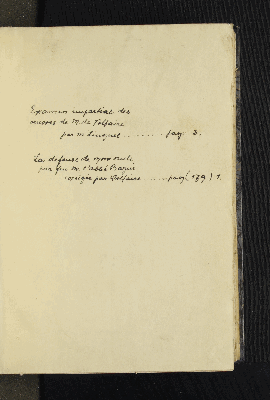 Examen impartial des
œuvres de M. de Voltaire
par M. Linguet ........ pag. 3.
La défense de mon oncle
par feu M. l'abbé Bazin
corrigée par Voltaire ..... pag. 139